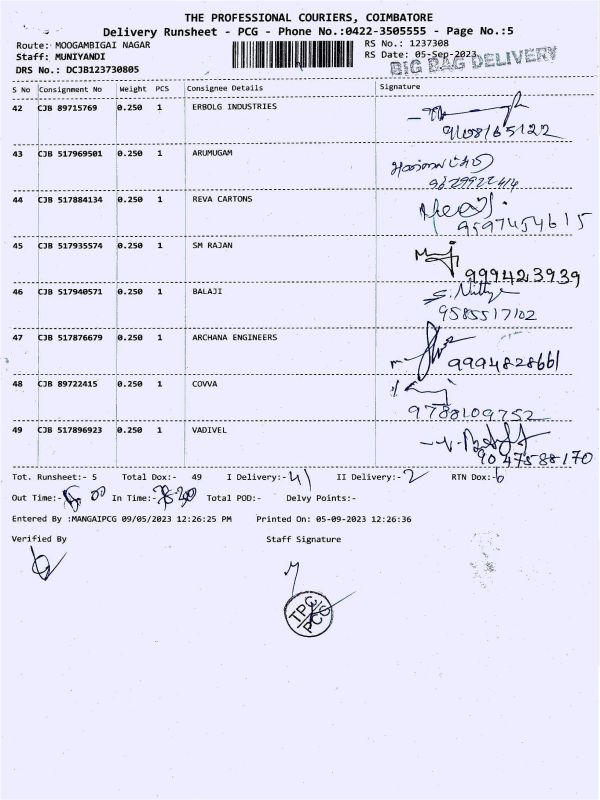 THE PROFESSIONAL COURIERS, COIMBATORE
Delivery Runsheet - PCG - Phone No.:0422-3505555 - Page No.:5
Route: MOOGAMBIGAI NAGAR RS No.: 1237308
Staff: MUNIYANDI RS Date: 05-Sep-2023
DRS No.: DCJB123730805 BIG BAG DELIVERY
S No Consignment No Weight PCS Consignee Details Signature
42 CJB 89715769 0.250 1 ERBOLG INDUSTRIES
43 CJB 517969501 0.250 1 ARUMUGAM
9629922414
44 CJB 517884134 0.250 1 REVA CARTONS
9597454615
45 CJB 517935574 0.250 1 SM RAJAN
9994223939
46 CJB 517940571 0.250 1 BALAJI
S. Nithya
9585517102
47 CJB 517876679 0.250 1 ARCHANA ENGINEERS
9994828661
48 CJB 89722415 0.250 1 COVVA
9788109752
49 CJB 517896923 0.250 1 VADIVEL
9047588170
Tot. Runsheet:- 5 Total Dox:- 49 I Delivery:- 41 II Delivery:- 2 RTN Dox:- 6
Out Time:- In Time:- Total POD:- Delvy Points:-
Entered By :MANGAIPCG 09/05/2023 12:26:25 PM Printed On: 05-09-2023 12:26:36
Verified By Staff Signature
TPC
PCG